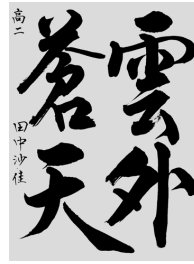 雲外
蒼天
高二 田中沙佳